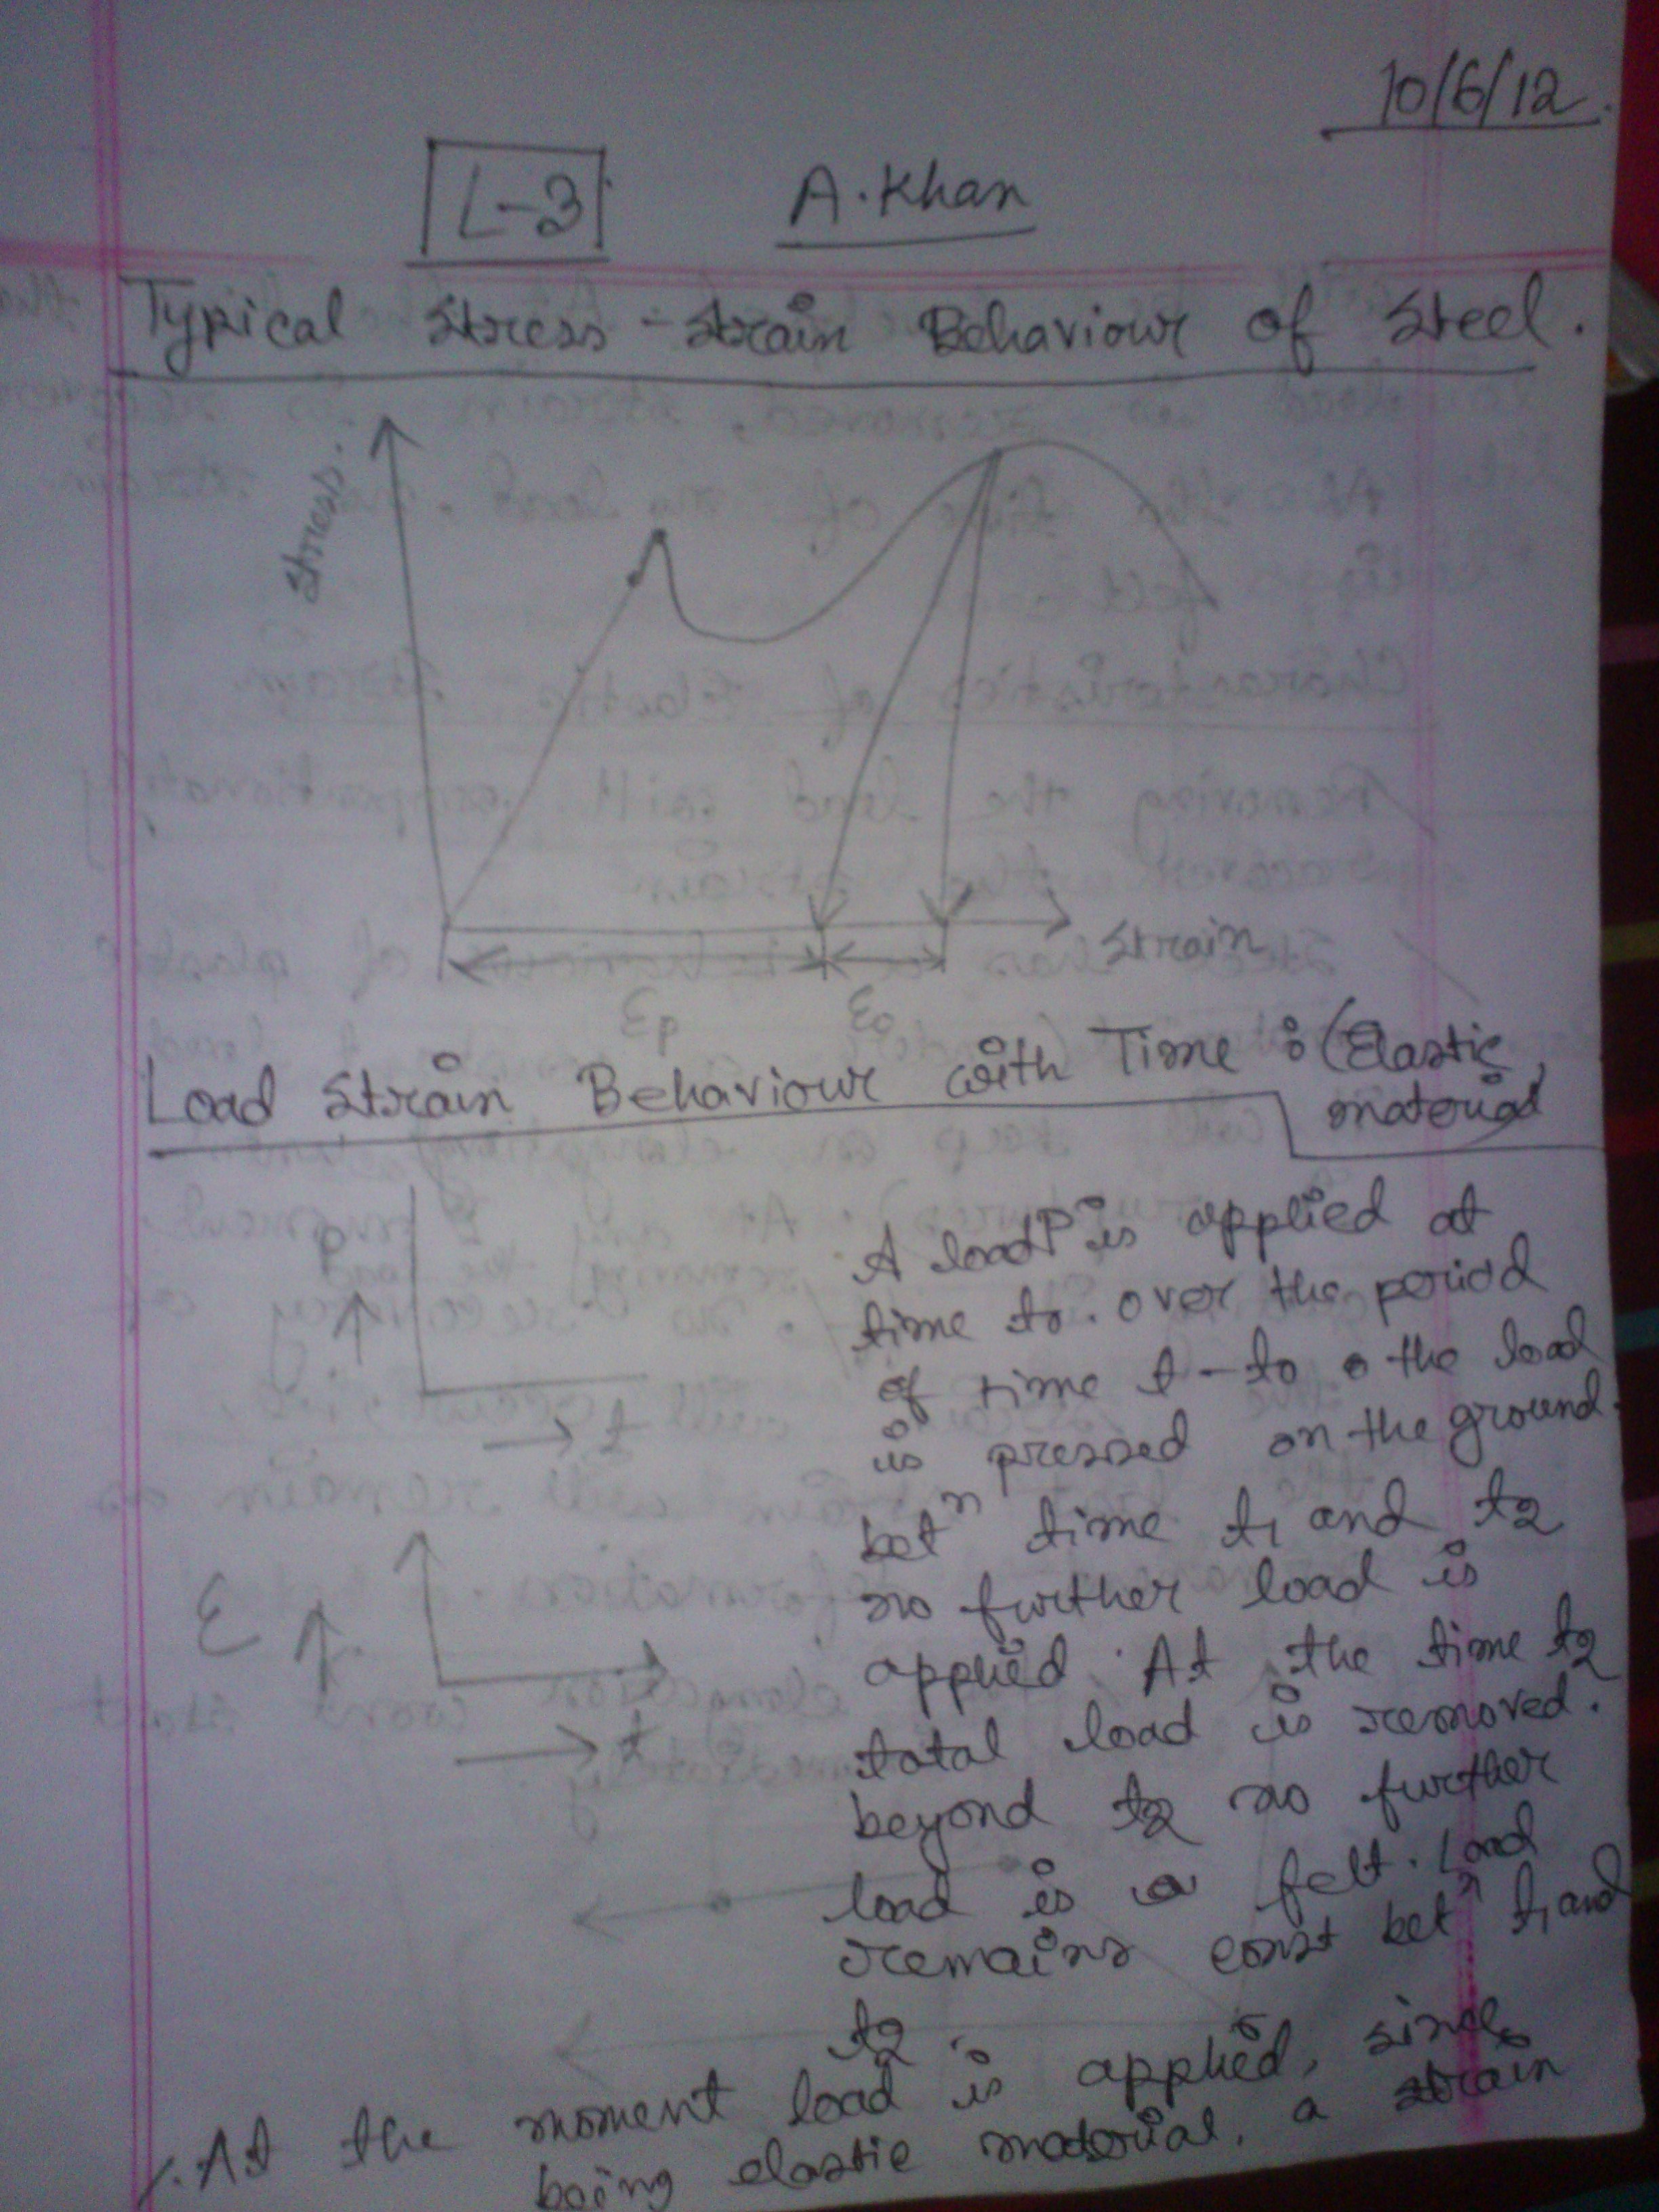 10/6/12.
L-3 A. Khan
Typical Stress-Strain Behaviour of Steel.
Stress.
Strain
Ɛp Ɛo
Load Strain Behaviour with Time : (Elastic
material
P
t
Ɛ
t
A load P is applied at
time to. over the period
of time t - to the load
is pressed on the ground.
betn time t1 and t2
no further load is
applied. At the time t2
total load is removed.
beyond t2 no further
load is felt. Load
remains const betn t1 and
t2.
1. At the moment load is applied, since
being elastic material, a strain